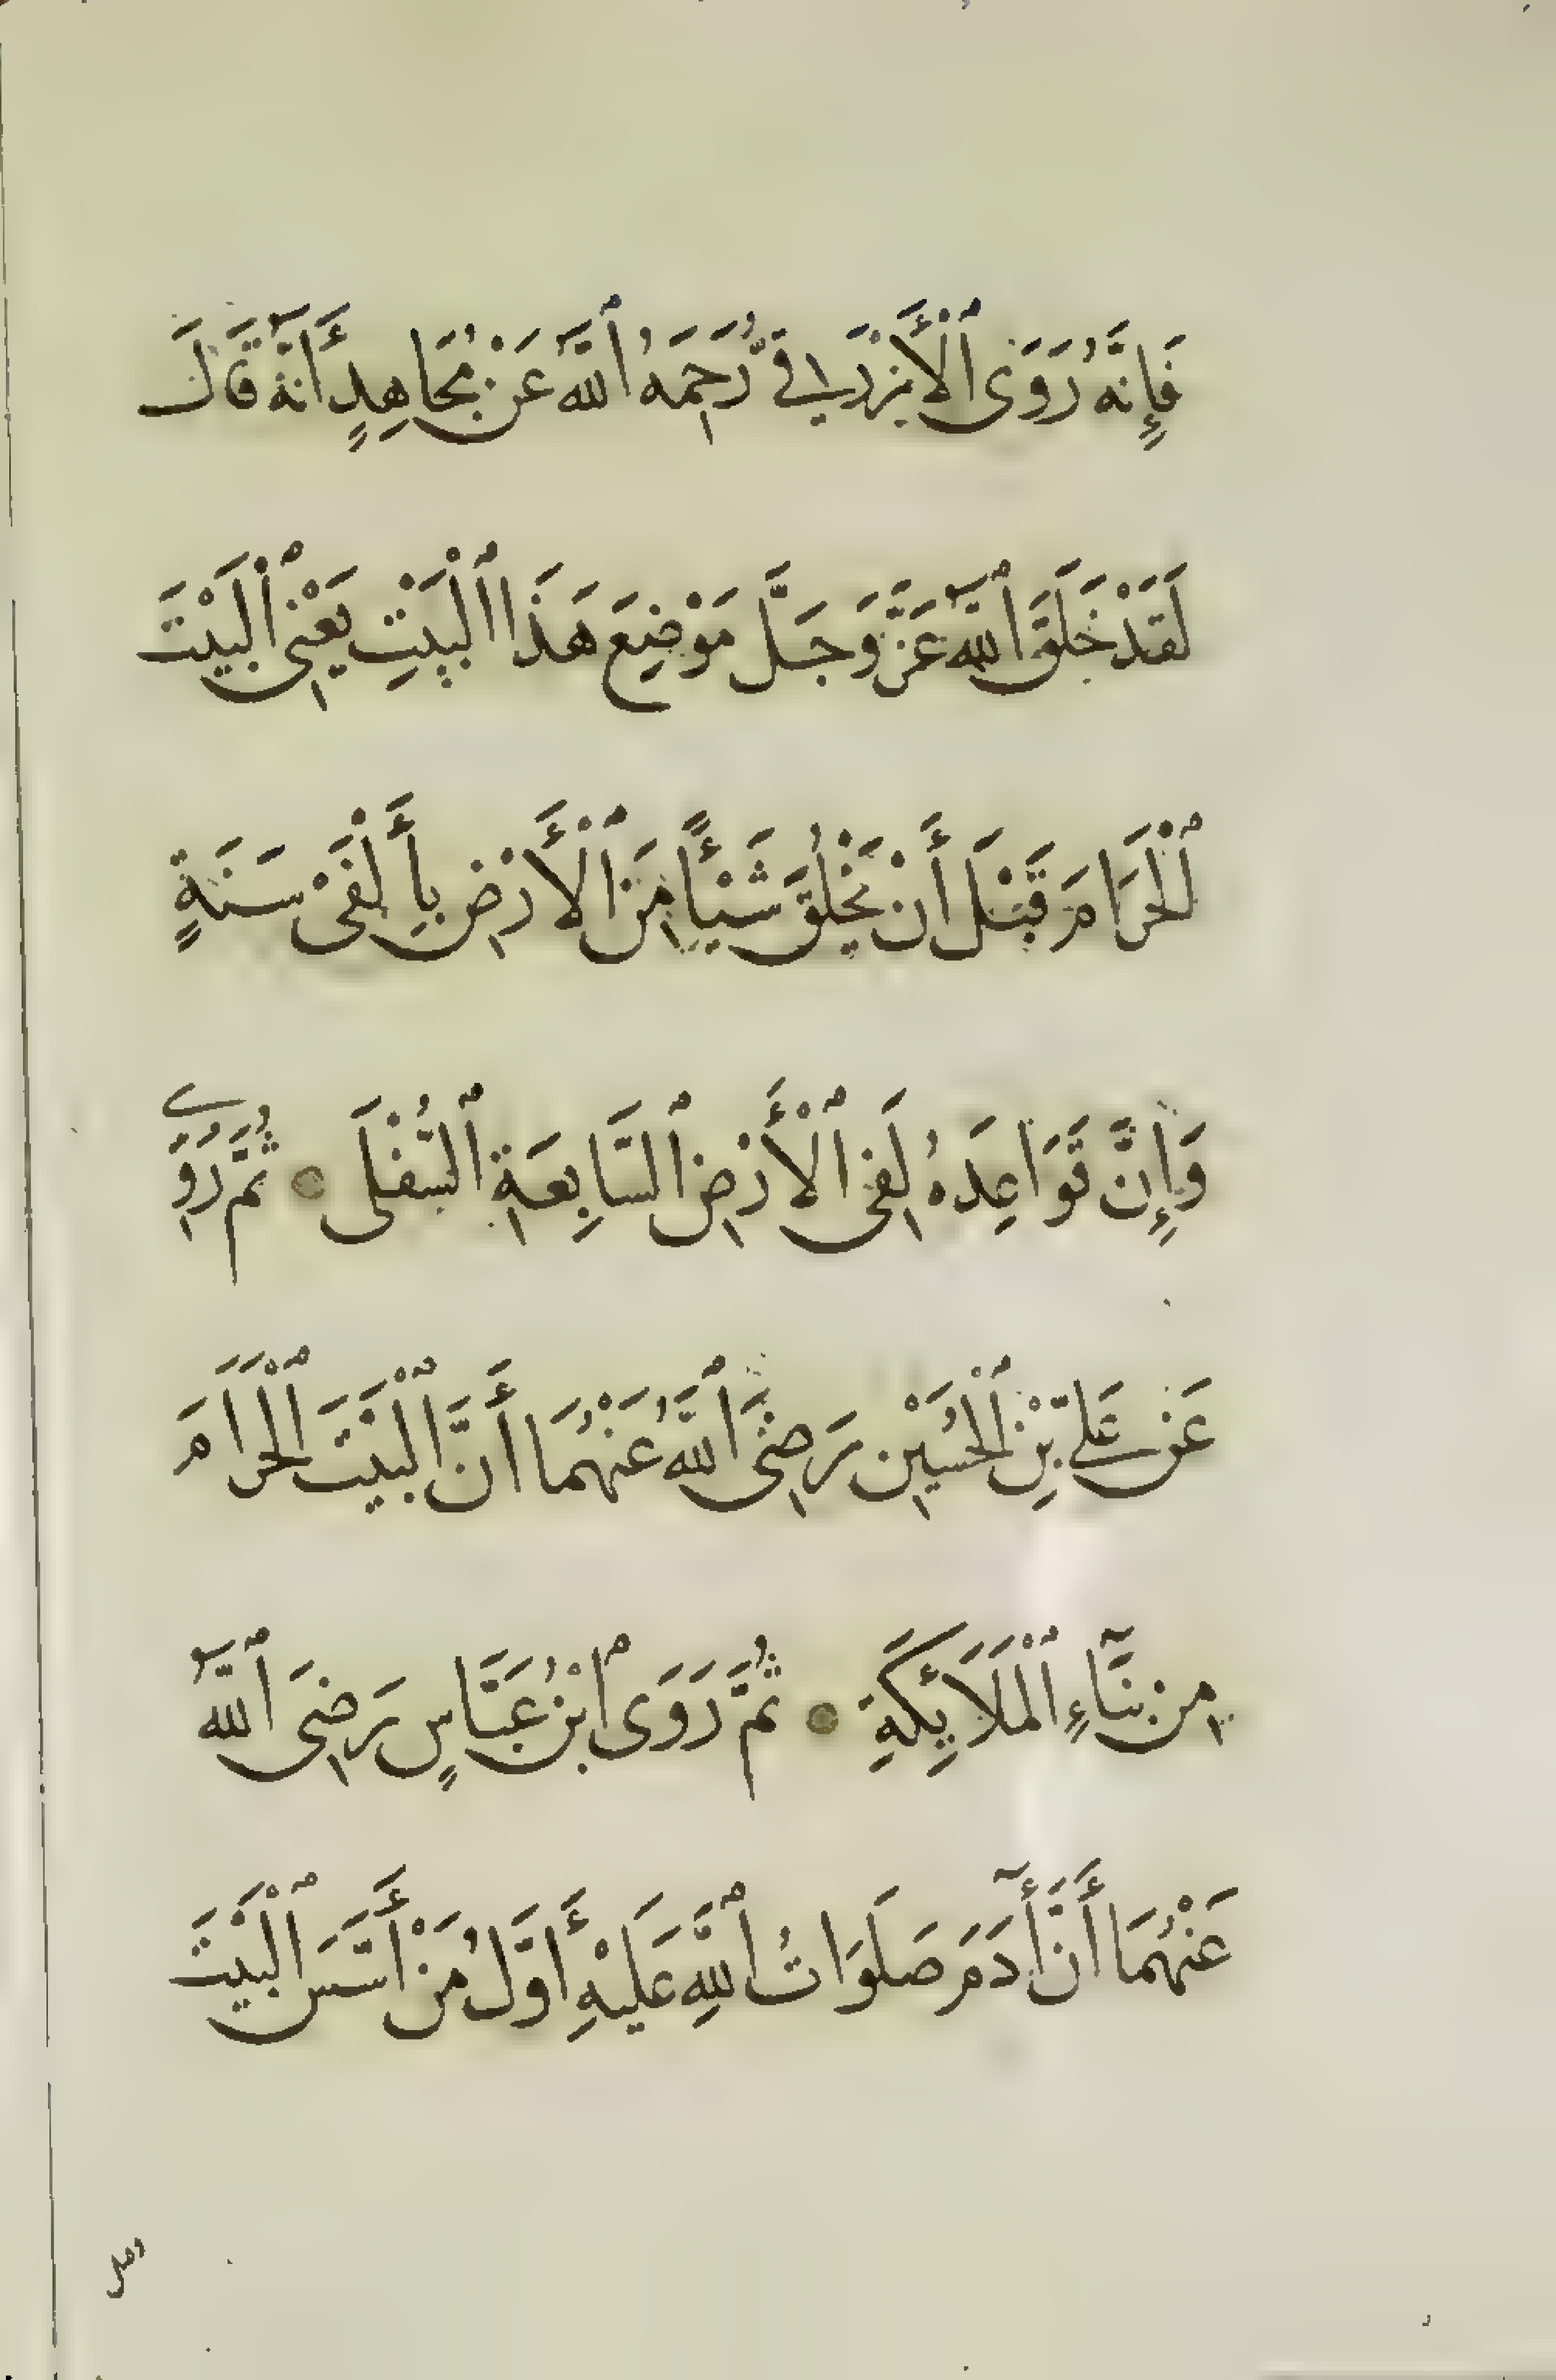 فَإِنَّهُ رَوَى ٱلْأَزْرَقِي رَّحِمَهُ ٱللَّهُ عَنْ مُجَاهِدٍ أَنَّهُ قَالَ
لَقَدْ خَلَقَ ٱللَّهُ عَزَّ وَجَلَّ مَوْضِعَ هَذَا ٱلْبَيْتِ يَعْنِى ٱلْبَيْتَ
ٱلْحَرَامَ قَبْلَ أَنْ يَخْلُقَ شَيْئًا مِنَ ٱلْأَرْضِ بِأَلْفَىْ سَنَةٍ
وَإِنَّ قَوَاعِدَهُ لَفِى ٱلْأَرْضِ ٱلسَّابِعَةِ ٱلسُّفْلَى ثُمَّ رُوِىَ
عَنْ عَلِىِّ بْنِ ٱلْحُسَيْنِ رَضِىَ ٱللَّهُ عَنْهُمَا أَنَّ ٱلْبَيْتَ ٱلْحَرَامَ
مِنْ بِنَآءِ ٱلْمَلَائِكَةِ ثُمَّ رَوَى ٱبْنُ عَبَّاسٍ رَضِىَ ٱللَّهُ
عَنْهُمَا أَنَّ أٓدَمَ صَلَوَاتُ ٱللَّهِ عَلَيْهِ أَوَّلُ مَنْ أَسَّسَ ٱلْبَيْتَ